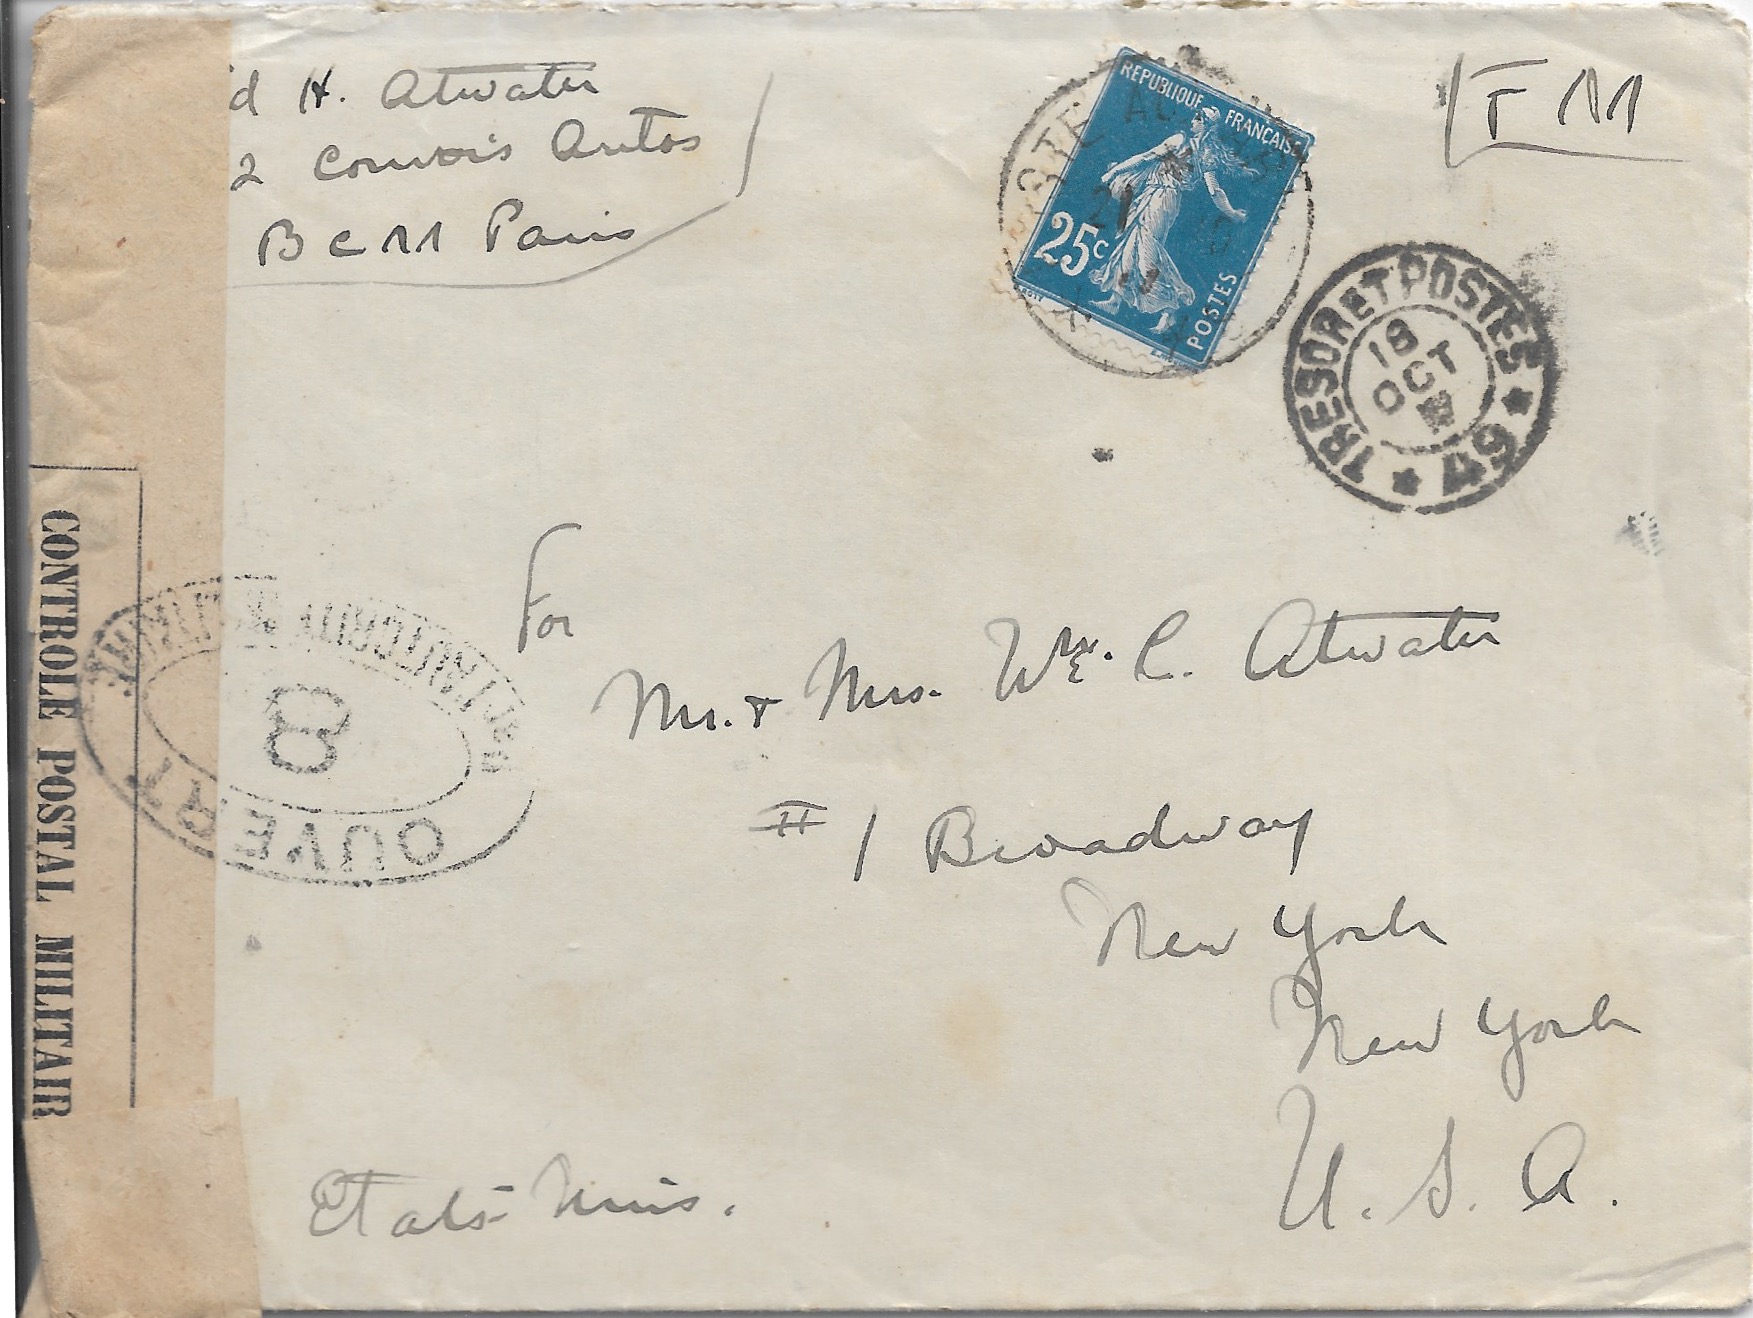 d H. Atwater
2 Convois Autos
B C M Paris
REPUBLIQUE FRANÇAISE
25c
POSTES
FM
TRESOR ET POSTES
* 64 *
18
OCT
CONTROLE POSTAL MILITAIR
PAR L'AUTORITÉ MILITAIRE
8
OUVERT
For
Mr. & Mrs. Wm. C. Atwater
# 1 Broadway
New York
New York
U. S. A.
Etats-Unis.